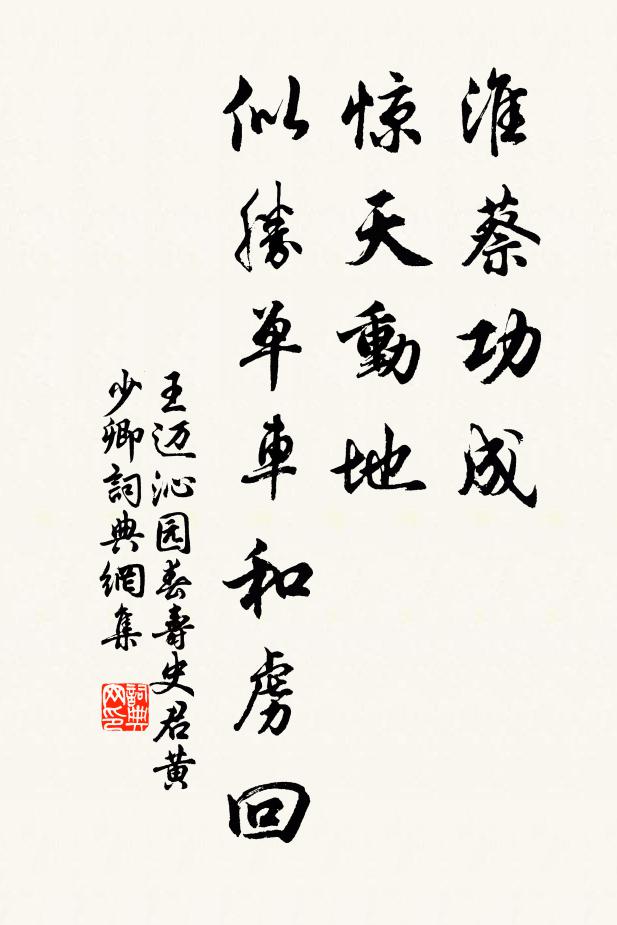 淮蔡功成
惊天動地
似勝单車和虜回
王迈沁园春壽史君黄
少卿詞典網集
詞典网印